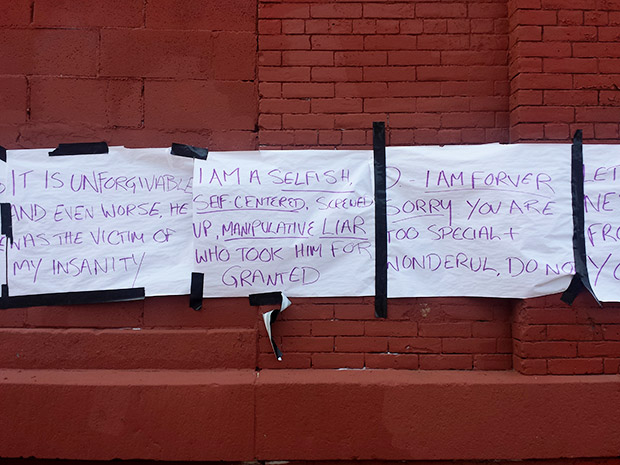 IT IS UNFORGIVABLE
AND EVEN WORSE, HE
WAS THE VICTIM OF
MY INSANITY
I AM A SELFISH,
SELF CENTERED, SCREWED
UP, MANIPULATIVE LIAR
WHO TOOK HIM FOR
GRANTED
D - I AM FORVER
SORRY YOU ARE
TOO SPECIAL +
WONDERUL, DO NO
LET
NE
FRO
YO